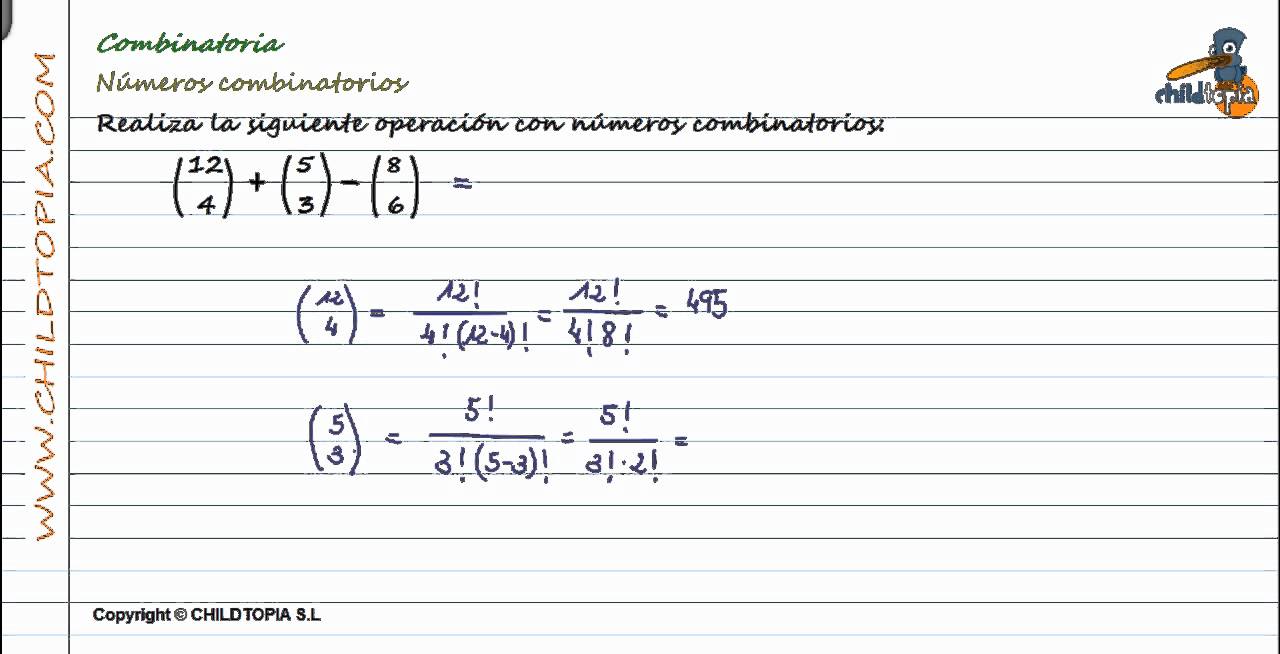 Combinatoria
Números combinatorios
childtopia
Realiza la siguiente operación con números combinatorios:
(12 4) + (5 3) - (8 6) =
(12 4) = 12! / 4! (12-4)! = 12! / 4! 8! = 495
(5 3) = 5! / 3! (5-3)! = 5! / 3! · 2! =
WWW.CHILDTOPIA.COM
Copyright © CHILDTOPIA S.L